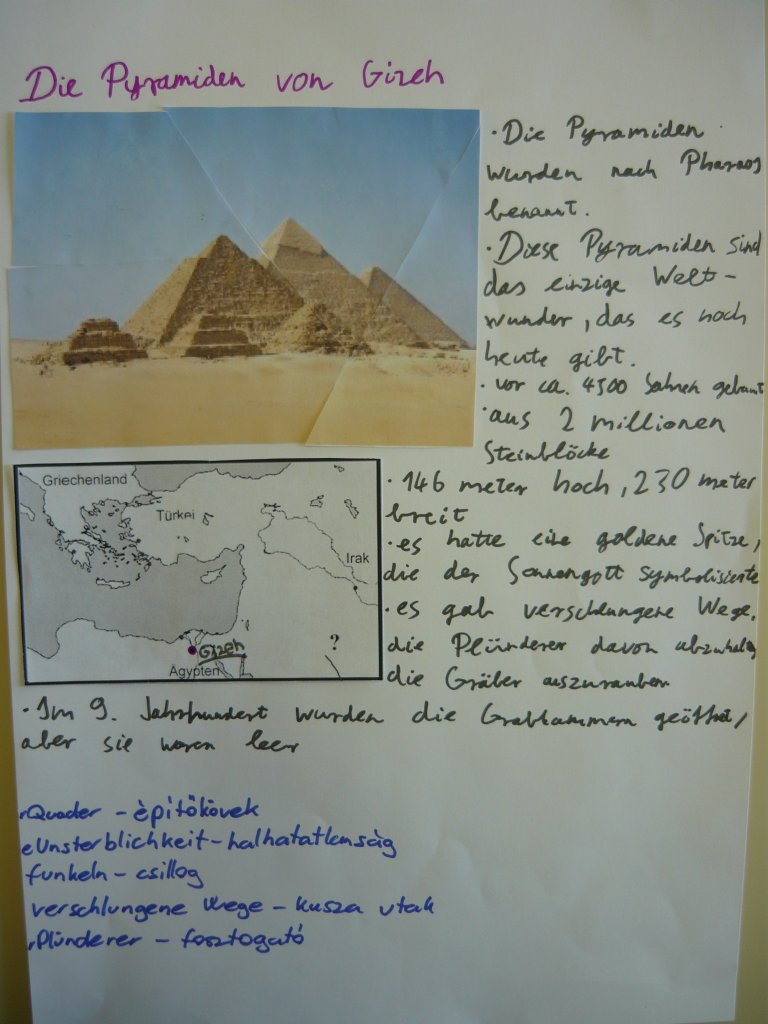 Die Pyramiden von Gizeh
· Die Pyramiden
wurden nach Pharaos
benannt.
· Diese Pyramiden sind
das einzige Welt-
wunder, das es noch
heute gibt.
· vor ca. 4500 Jahren gebaut
· aus 2 millionen
Steinblöcke
· 146 meter hoch, 230 meter
breit
· es hatte eine goldene Spitze,
die der Sonnengott symbolisierte
· es gab verschlungene Wege,
die Plünderer davon abzuhalten
die Gräber auszurauben
Griechenland
Türkei
Irak
?
Gizeh
Ägypten
· Im 9. Jahrhundert wurden die Grabkammern geöffnet,
aber sie waren leer
r Quader – èpítőkövek
e Unsterblichkeit – halhatatlanság
funkeln – csillog
verschlungene Wege – kusza utak
r Plünderer – fosztogató